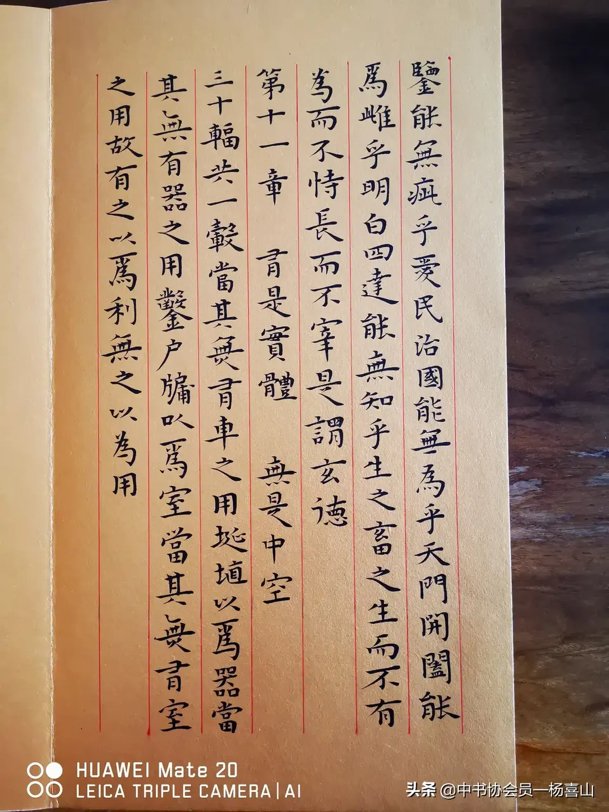 鑒能無疵乎愛民治國能無為乎天門開闔能
爲雌乎明白四達能無知乎生之畜之生而不有
為而不恃長而不宰是謂玄德
第十一章 有是實體 無是中空
三十輻共一轂當其無有車之用埏埴以爲器當
其無有器之用鑿户牖以爲室當其無有室
之用故有之以爲利無之以為用
HUAWEI Mate 20
LEICA TRIPLE CAMERA | AI
头条 @中书协会员一杨喜山